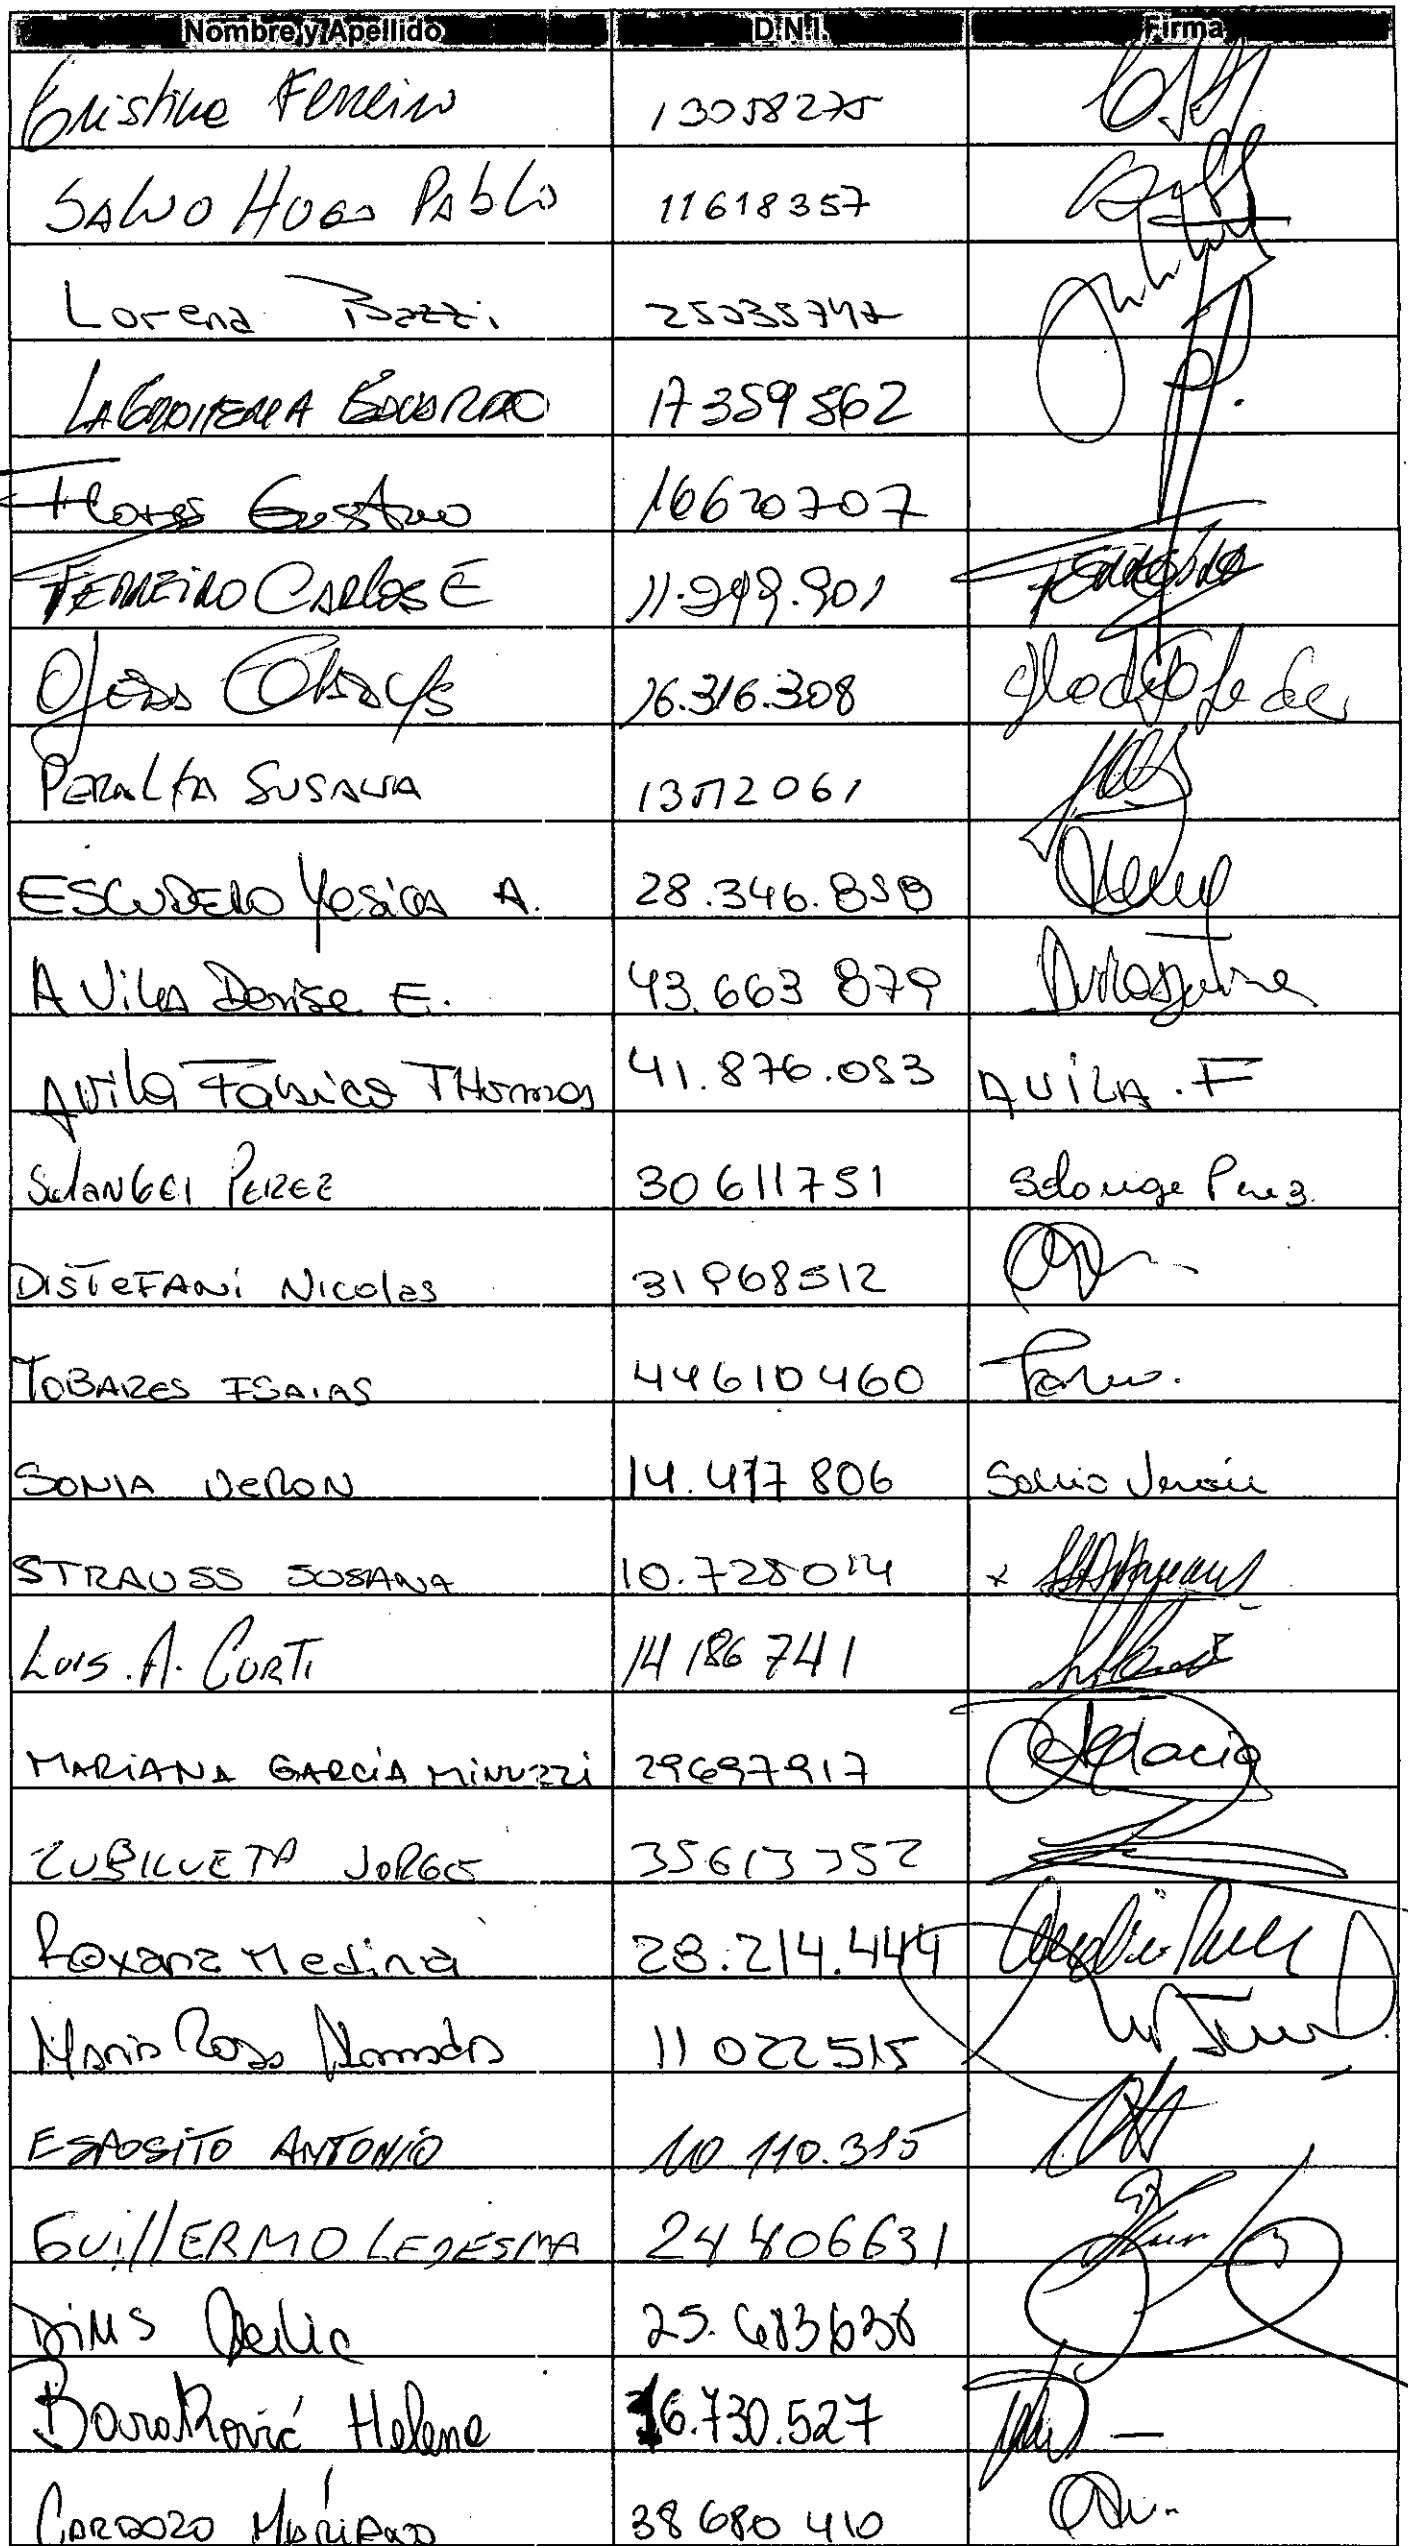 Nombre y Apellido D.N.I. Firma
Cristina Ferreiro 13058275
SALVO HUGO PAbLO 11618357
Lorena Bazzi 25035747
EDUARDO 17359562
Flores Gustavo 16620707
FERREIRO CARLOS E 11.299.901
Ojeda Gladys 16.316.308
PERALTA SUSANA 13512061
ESCUDERO Yesica A. 28.346.858
AVila Denise E. 43.663 879
Avila Fabricio THomas 41.876.083 AVILA.F
SolanGEl PEREZ 30 611751 Solange Perez
DISTEFANi Nicolas 31968512
TOBARES ISAIAS 44610460
SONIA VERON 14.417 806 Sonia Verón
STRAUSS SUSANA 10.728014 x
LUIS.A. CURTI 14 186 741
MARIANA GARCÍA MiNUZZi 29697917
JORGE 35613352
Roxana Medina 28.214.444
Maria Rosa 11 022515
ESPOSITO ANTONIO 10.110.315
GUillERMO LEDESMA 24406631
25.683638
Helena 16.730.527
CARDOZO 38 680 410